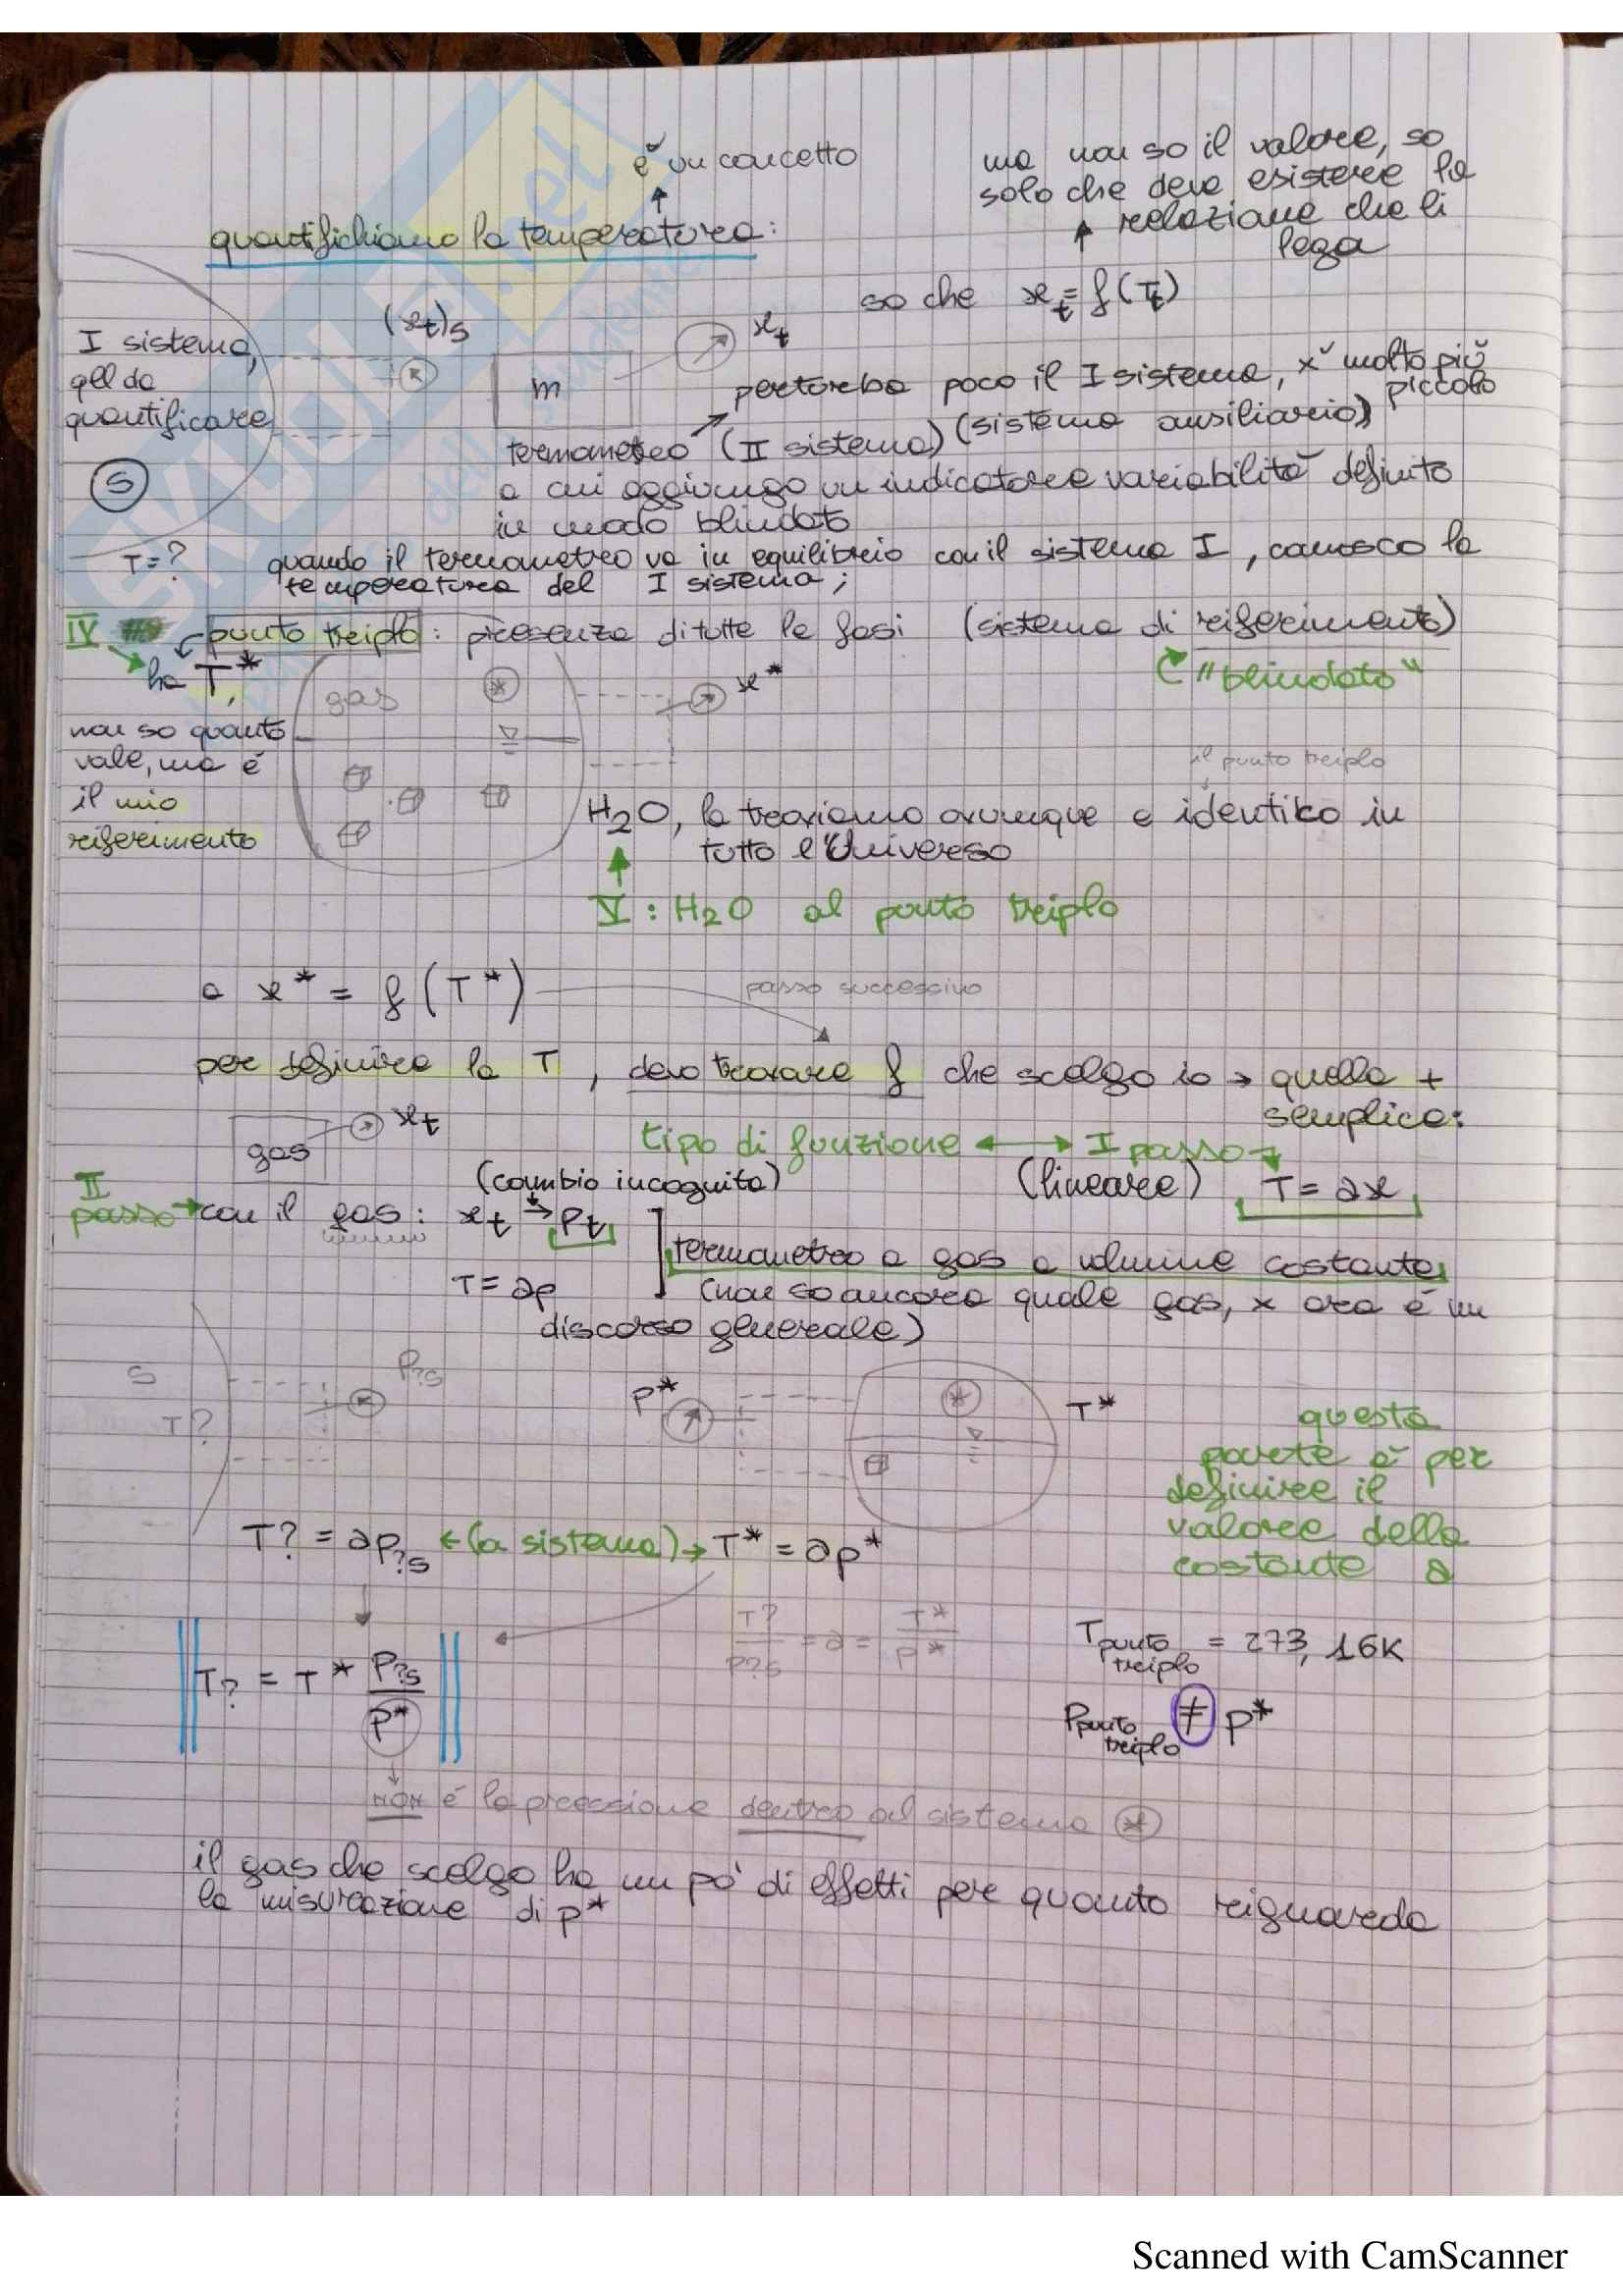 è un concetto
ma non so il valore, so
solo che deve esistere la
relazione che li
lega
quantifichiamo la temperatura:
so che x_t = f(T_t)
(x_t)_S
x_t
I sistema,
qll da
quantificare
m
perturba poco il I sistema, x' molto più
piccolo
termometro (II sistema) (sistema ausiliario)
S
a cui aggiungo un indicatore variabilità definito
in modo blindato
T=? quando il termometro va in equilibrio con il sistema I, conosco la
temperatura del I sistema;
IV punto triplo: presenza di tutte le fasi (sistema di riferimento)
ha T*,
"blindato"
gas * x*
non so quanto
vale, ma è
il mio
riferimento
il punto triplo
H2O, lo troviamo ovunque e identico in
tutto l'Universo
V: H2O al punto triplo
x* = f(T*) passo successivo
per definire la T, devo trovare f che scelgo io → quella +
semplice:
gas x_t
tipo di funzione ↔ I passo →
(cambio incognita) (lineare) T = ax
II
passo → con il gas: x_t → p_t
termometro a gas a volume costante
T = ap (non so ancora quale gas, x ora è un
discorso generale)
S
T?
P?s
p* * T*
questa
parte è per
definire il
valore della
costante a
T? = aP?s ← (a sistema) → T* = ap*
T?/P?s = a = T*/p*
T punto triplo = 273,16K
T? = T* P?s/p*
P punto triplo ≠ p*
NON è la pressione dentro al sistema *
il gas che scelgo ha un po' di effetti per quanto riguarda
la misurazione di p*
SKUOLA.net
Scanned with CamScanner